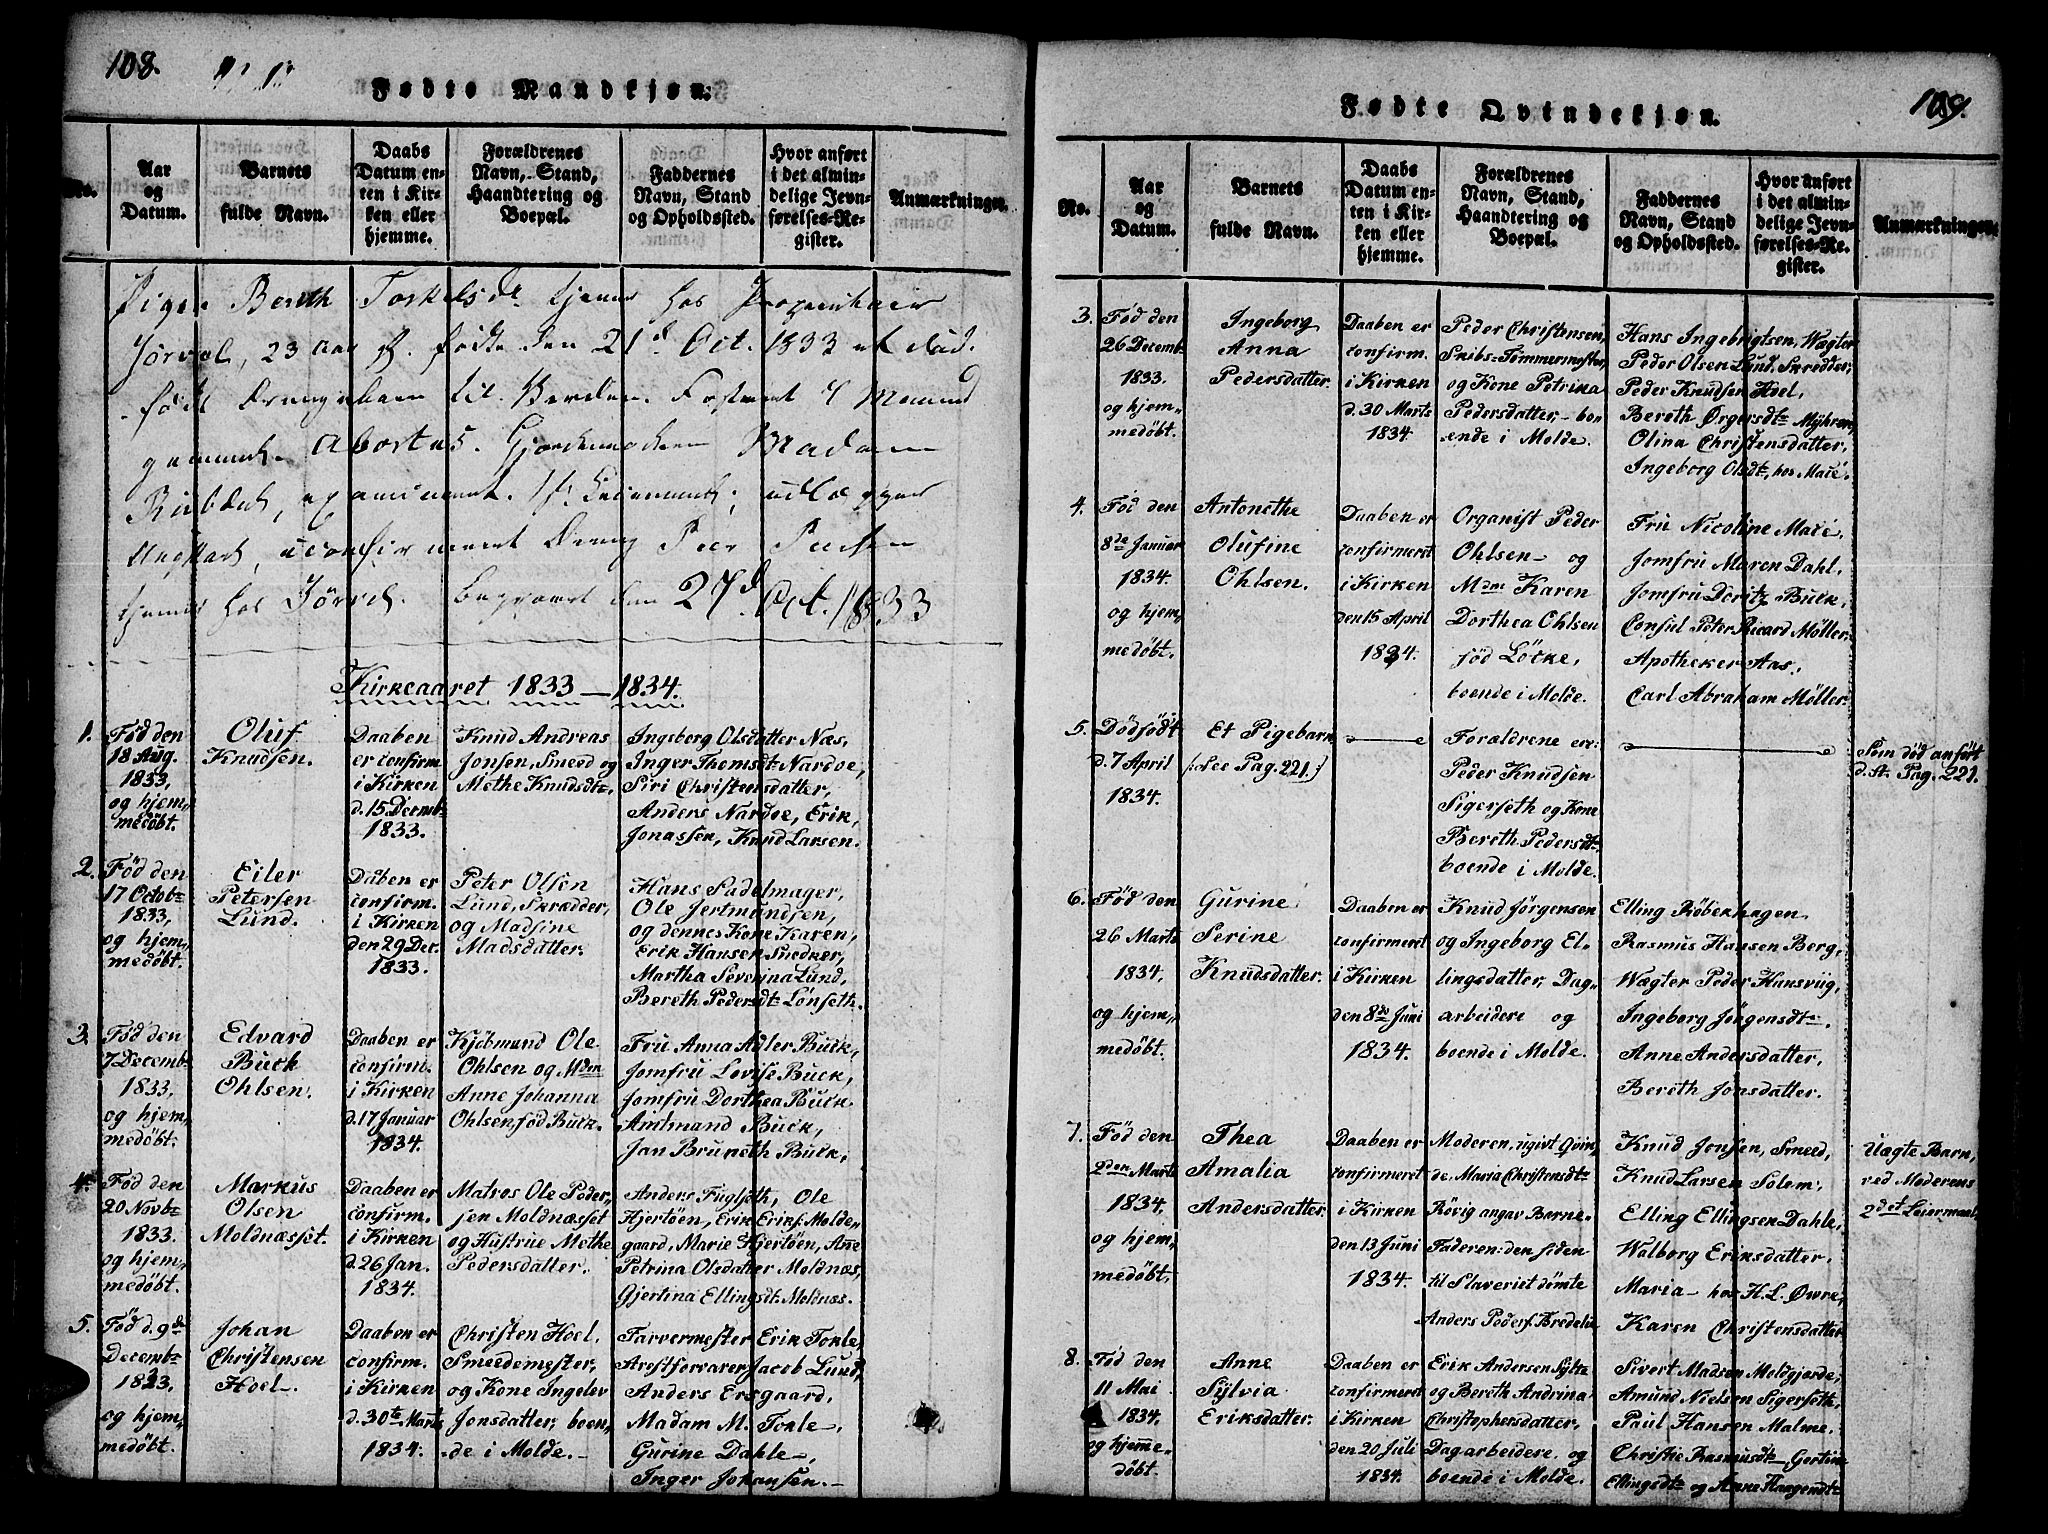 108.
Fødte Mandkjøn.
No.
Aar
og
Datum.
Barnets
fulde Navn.
Daabs
Datum en-
ten i Kir-
ken eller
hjemme.
Forældrenes
Navn, Stand,
Haandtering og
Boepæl.
Faddernes
Navn, Stand
og Opholdssted.
Hvor anført
i det almin-
delige Jevn-
førelses-Re-
gister.
Anmærkninger.
Pigen Bereth Torkelsdr tjener hos
23 Aar fødte den 21d Oct. 1833 et
født Drengebarn til Verden.
Abortus. Gjordemoderen Madam
examineret.
uconfirmeret Dreng Peer
tjener hos Begravet den 27d Oct. 1833
Kirkeaaret 1833 — 1834.
1.
Fød den
18 Aug.
1833,
og hjem„
medøbt.
Oluf
Knudsen.
Daaben
er confirm
i Kirken
d. 15 Decemb
1833.
Knud Andreas
Jonsen, Smeed og
Methe Knudsdtr.
Ingeborg Olsdatter Næs,
Inger Thomsdt Nardoe,
Siri Christensdatter,
Anders Nardoe, Erik,
Jonassen, Knud Larsen.
2.
Fød den
17 Octobr
1833,
og hjem„
medøbt.
Eiler
Petersen
Lund.
Daben er
confirm.
i Kirken
den 29 Dec.
1833.
Peter Olsen
Lund, Skrædder,
og Madsine
Madsdatter.
Hans Sadelmager,
Ole Jertmundsen,
og dennes Kone Karen,
Erik Hansen Snedker,
Martha Severina Lund,
Bereth Pedersdt Lønseth.
3.
Fød den
7 Decemb
1833,
og hjem„
medøbt.
Edvard
Buck
Ohlsen.
Daaben er
confirm.
i Kirken
d. 17 Januar
1834.
Kjöbmand Ole
Ohlsen og Mdm
Anne Johanna
Ohlsen fød Buck.
Fru Anna Adler Buck,
Jomfru Lovise Buck,
Jomfru Dorthea Buck
Amtmand Buck,
Jan Bruneth Buck,
4.
Fød den
20 Novbr
1833.
og hjem„
medøbt.
Markus
Olsen
Moldnæsset.
Daaben er
confirm.
i Kirken
d. 26 Jan.
1834.
Matros Ole Peder„
sen Moldnæsset
og Hustrue Methe
Pedersdatter.
Anders Fuglseth, Ole
Hjertöen, Erik Eriks. Molde„
gaard, Marie Hjertöen, Anne
Petrina Olsdatter Moldnæs,
Gjertina Ellingsdt. Moldnæs.
5.
Fød d. 9de
Decembr
1833,
og hjem„
medøbt.
Johan
Christensen
Hoel.
Daaben er
confirm.
i Kirken
d. 30te Marts
1834.
Christen Hoel,
Smeedemester,
og Kone Ingebor
Jonsdatter, boen„
de i Molde.
Farvermester Erik Tokle,
Arestforvarer Jacob Lund,
Anders Ersgaard,
Madam M. Tokle,
Gurine Dahle,
Inger Johansen.
109.
Fødte Qvindekjøn.
No.
Aar
og
Datum.
Barnets
fulde Navn.
Daabs
Datum en-
ten i Kir-
ken eller
hjemme.
Forældrenes
Navn, Stand,
Haandtering og
Boepæl.
Faddernes
Navn, Stand
og Opholdssted.
Hvor anført
i det almin-
delige Jevn-
førelses-Re-
gister.
Anmærkninger.
3.
Fød den
26 Decemb
1833.
og hjem„
medøbt.
Ingeborg
Anna
Pedersdatter.
Daaben er
confirm.
i Kirken
d. 30 Marts
1834.
Peder Christensen,
Skibs-Tømmermester,
og Kone Petrina
Pedersdatter, bo„
ende i Molde.
Hans Ingebrigtsen, Vægter
Peder Olsen Lund, Skredder,
Peder Knudsen Hoel,
Bereth Ørgersdtr Myhren,
Olina Christensdatter,
Ingeborg Olsdt, hos Macé.
4.
Fød den
8de Januar
1834.
og hjem„
medøbt.
Antonethe
Olufine
Ohlsen.
Daaben er
confirmeret
i Kirken
den 15 April
1834.
Organist Peder
Ohlsen og
Mdm Karen
Dorthea Ohlsen
fød Löcke,
boende i Molde.
Fru Nicoline Macé,
Jomfru Maren Dahl,
Jomfru Doritz Buck,
Consul Peter Ricard Møller,
Apotheker Aas,
Carl Abraham Møller.
5.
Dødfödt
d. 7 April
1834.
Et Pigebarn
/: see Pag. 221. :/
Forældrene ere:
Peder Knudsen
Sigerseth og Kone
Bereth Pedersdtr
boende i Molde.
Som død anført
d. St. Pag. 221.
6.
Fød den
26 Marts
1834,
og hjem„
medøbt.
Gurine
Serine
Knudsdatter.
Daaben er
confirmeret
i Kirken
den 8de Juni
1834.
Knud Jørgensen
og Ingeborg El„
lingsdatter, Dag„
arbeidere og
boende i Molde.
Elling Röbekhagen
Rasmus Hansen Berg,
Vægter Peder Hansviig,
Ingeborg Jörgensdtr.
Anne Andersdatter,
Bereth Jonsdatter.
7.
Fød den
2den Marts
1834.
og hjem„
medøbt.
Thea
Amalia
Andersdatter.
Daaben er
confirmeret
i Kirken
den 13 Juni
1834.
Moderen, ugivt Qvin„
de, Maria Christensdtr
Rövig angav Barne„
Faderen: den siden
til Slaveriet dömte
Anders Peders. Bredelie
Knud Jonsen, Smeed,
Knud Larsen Solem,
Elling Ellingsen Dahle,
Walborg Eriksdatter.
Maria hos H. L. Øvre,
Karen Christensdatter
Uægte Barn,
ved Moderens
2det Leiermaal.
8.
Fød den
11 Mai
1834.
og hjeme„
døbt.
Anne
Sylvia
Eriksdatter.
Daaben er
confirmeret
i Kirken
den 20 Juli
1834.
Erik Andersen Sylte
og Bereth Andrina
Christophersdatter,
Dagarbeidere og
boende i Molde.
Sivert Madsen Moldgjerde,
Amund Nielsen Sigerseth,
Paul Hansen Malme,
Christie Rasmusdt Gertine
Ellingsdtr og Anne Haagendtr